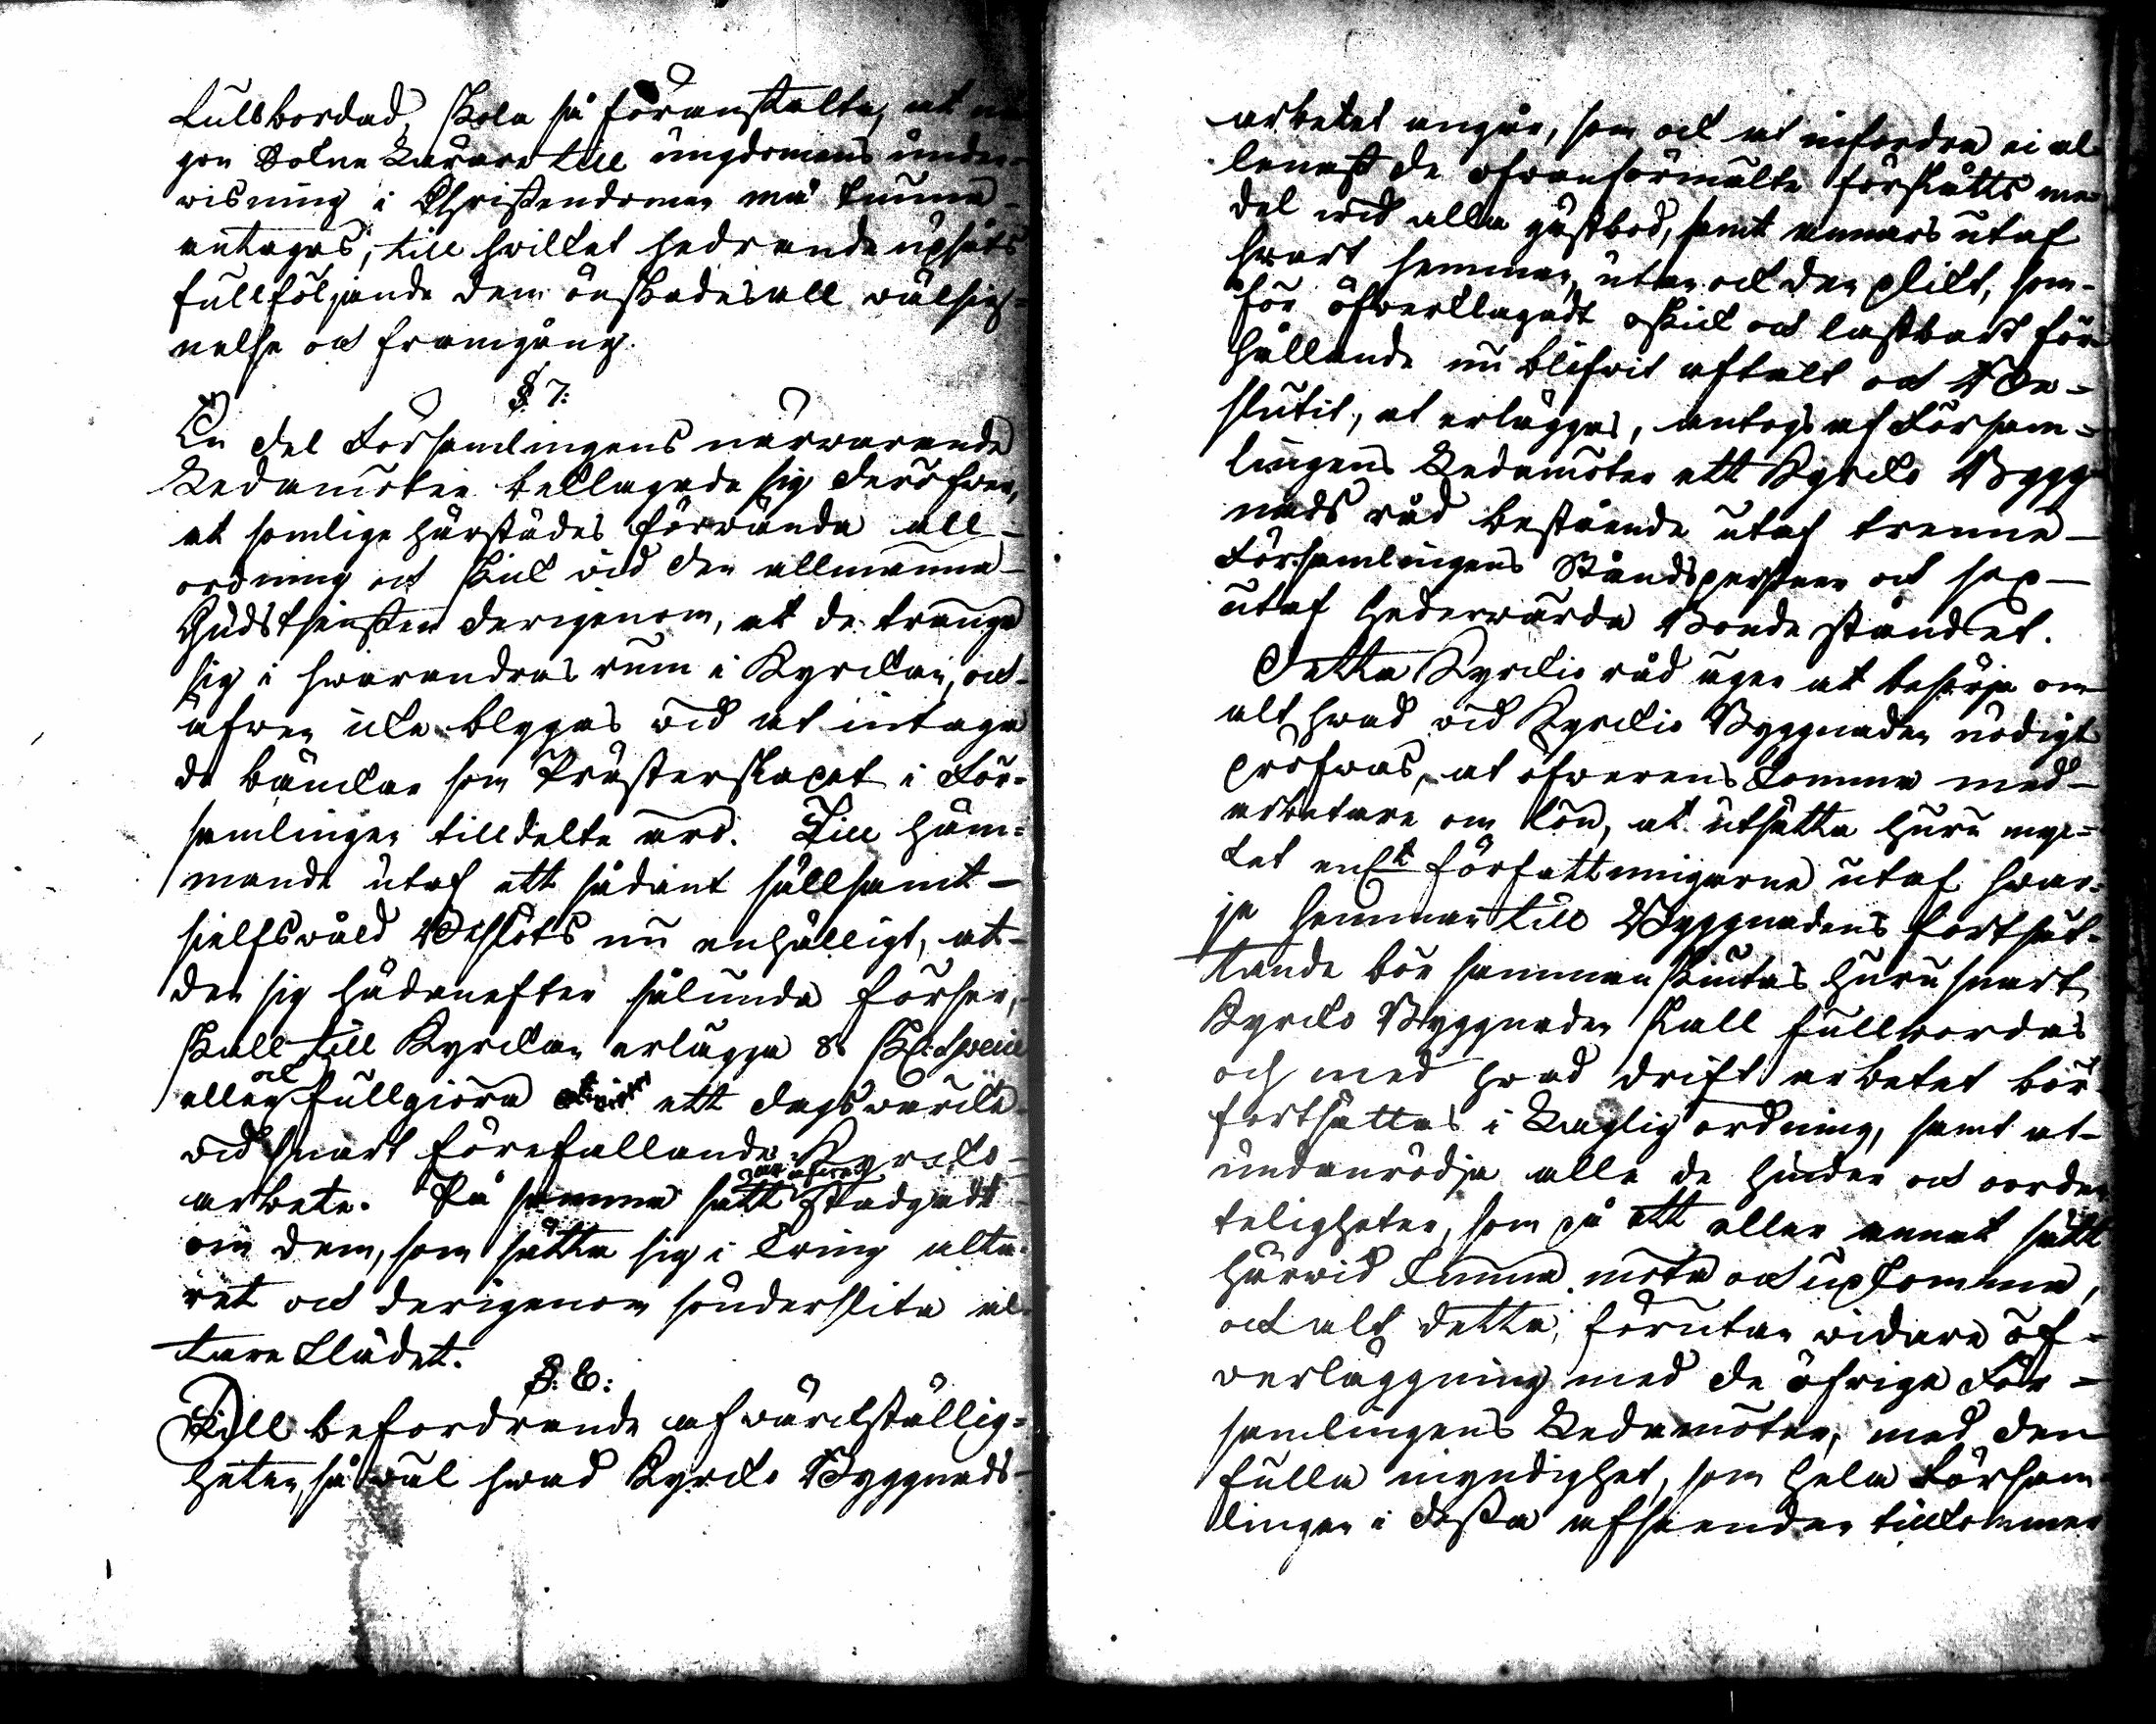 fullbordad, skola så föranstalta, at nå-
gon Sokne Lärare till ungdomens under-
wisning i Christendomen må kunna
antagas, till hwilket hedrande upsåts
fullföljande dem önskades all wälsig-
nelse och framgång.
§ 7:
En del Församlingens närwarande
Ledamöter beklagade sig deröfwer,
at somlige härstädes förwända all
ordning och skick wid den allmänna
Gudstiensten derigenom, at de tränga
sig i hwarandras rum i Kyrckan, och
äfwen icke blygas wid at intaga
de bänckar som Prästerskapet i För-
samlingen tilldelte äro. Till häm-
mande utaf ett sådant sällsamt
sielfswåld Beslöts nu enhälligt, at
den sig hädanefter sålunda förser,
skall till Kyrckan erlägga 8 sk: Specie
eller ock fullgiöra ett dagswärcke
wid snart förefallande Kyrcko
arbete. På samma sätt war äfwen stadgadt
om dem, som sätta sig i kring alta-
ret och derigenom sönderslita al-
tare klädet.
§: 8:
Till befordrande af wärckställig-
heten, så wäl hwad Kyrcko Byggnads-
arbetet angår, som ock at infordra ei al-
lenast de ofwanförmälte förskåtts me-
del wid alla gästbod, samt annars utaf
hwart hemman, utan ock den plikt, som
för öfwerklagadt oskick och lastbart för-
hållande nu blifwit aftalt och Be-
slutit, at erläggas, antogs af Försam-
lingens Ledamöter ett Kyrcko Bygg-
nads råd bestående utaf trenne
Församlingens Ståndspersoner och sex
utaf Hederwärda Bonde ståndet.
Detta Kyrckio råd äger at besörja om
alt hwad wid Kyrckio Byggnaden nödigt
pröfwas, at öfwerens komma med
arbetare om lön, at utsätta huru myc-
ket enl:t författningarne utaf hwar-
je hemman till Byggnadens fortsät-
tande bör sammanskiutas, huru snart
Kyrcko Byggnaden skall fullbordas
och med hwad drift arbetet bör
fortsättas i Laglig ordning, samt at
undanrödja alla de hinder och oorden-
teligheter, som på ett eller annat sätt
härwid kunna möta och upkomma,
och alt detta, förutan widare öf-
werläggning med de öfrige För-
samlingens Ledamöter, med den
fulla myndighet, som hela Försam-
lingen i dessa afseenden tillkommer